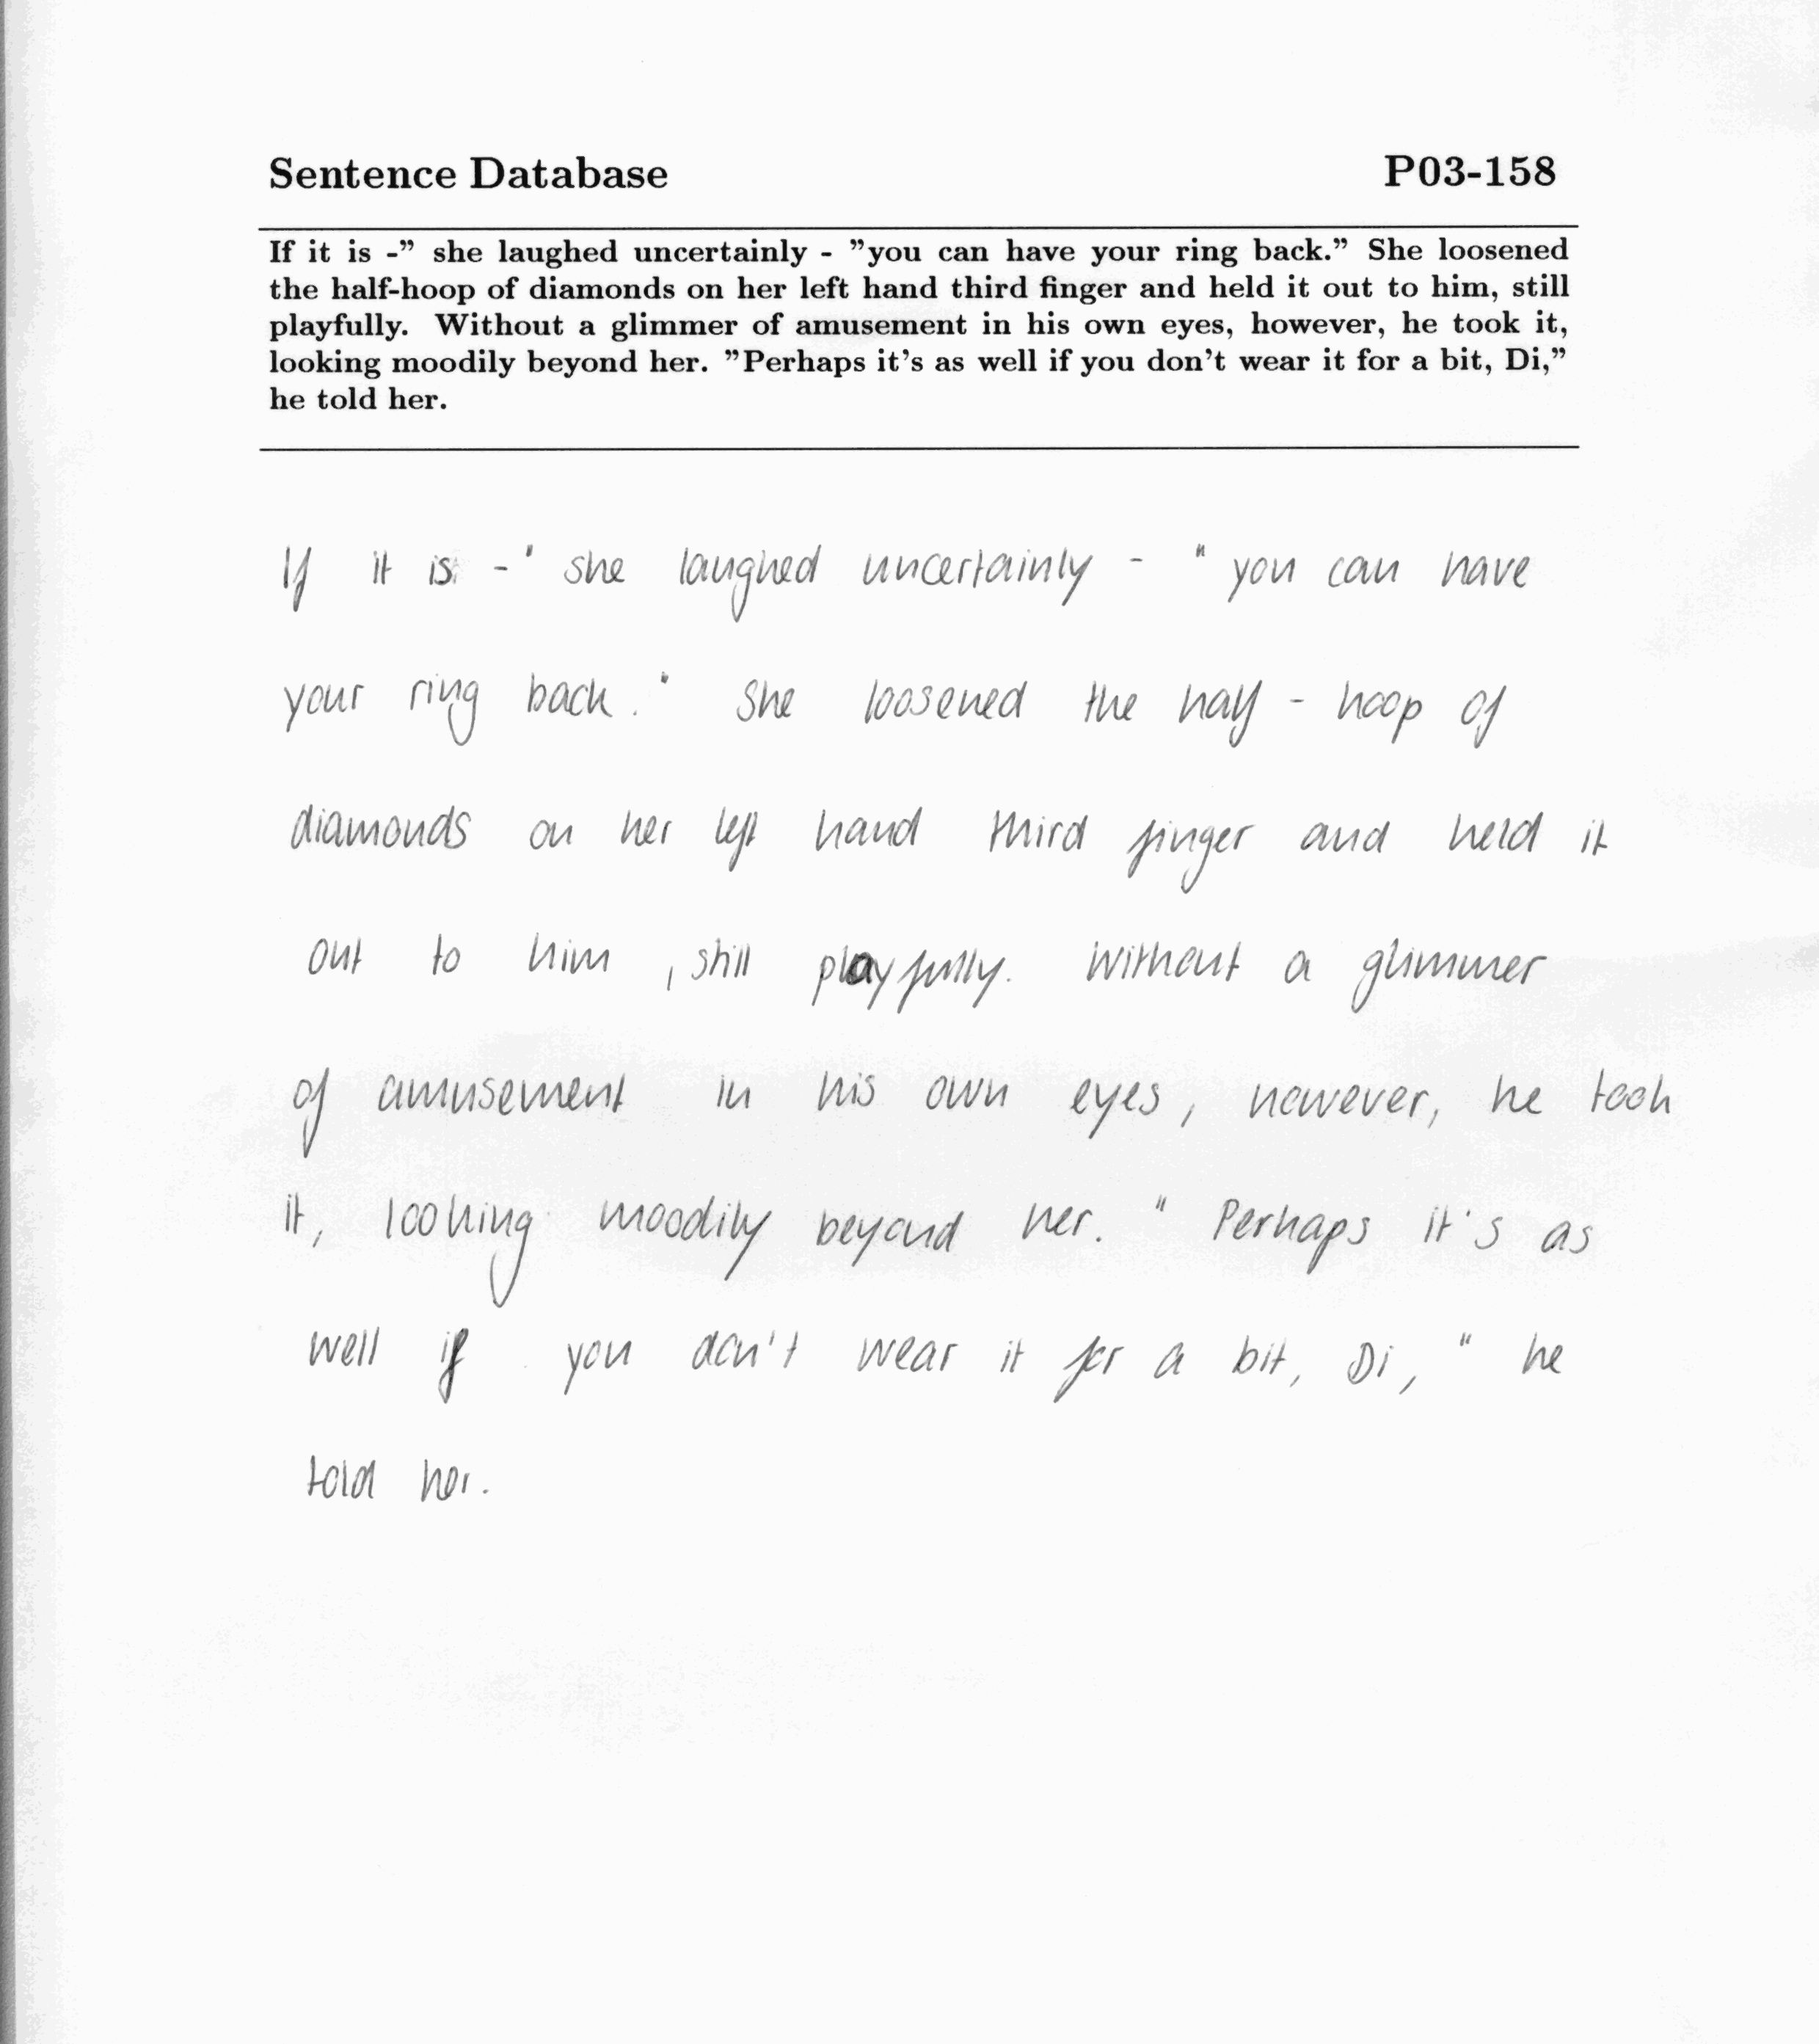 Sentence Database P03-158
If it is -” she laughed uncertainly - ”you can have your ring back.” She loosened
the half-hoop of diamonds on her left hand third finger and held it out to him, still
playfully. Without a glimmer of amusement in his own eyes, however, he took it,
looking moodily beyond her. ”Perhaps it’s as well if you don’t wear it for a bit, Di,”
he told her.
If it is - " she laughed uncertainly - " you can have
your ring back . " She loosened the half - hoop of
diamonds on her left hand third finger and held it
out to him , still playfully. Without a glimmer
of amusement in his own eyes , however, he took
it, looking moodily beyond her. " Perhaps it's as
well if you don't wear it for a bit, Di , " he
told her.